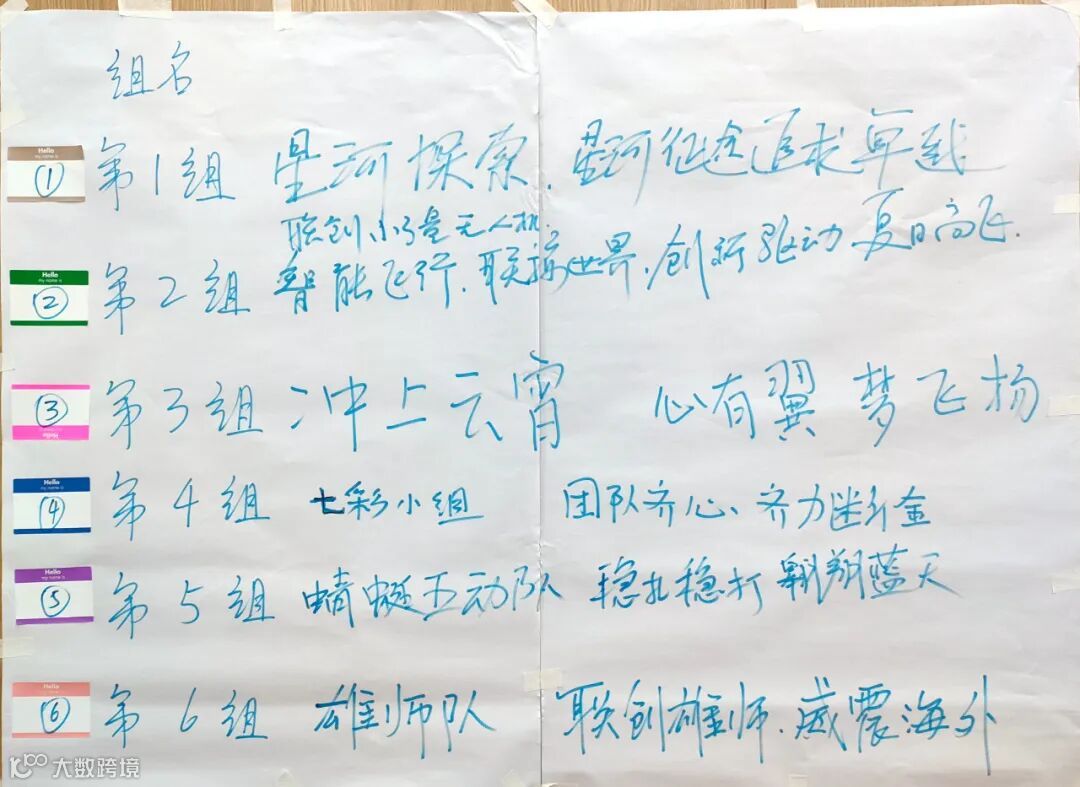 组名
Hello
my name is
① 第1组 星河探索. 星河征途追求卓越
联创小能量无人机.
Hello
my name is
② 第2组 智能飞行. 联接世界. 创新驱动 夏日高飞.
③ 第3组 冲上云霄 心有翼 梦飞扬
Hello
Hello
my name is
④ 第4组 七彩小组 团队齐心、齐力断金
Hello
my name is
⑤ 第5组 蜻蜓互动队 稳扎稳打 翱翔蓝天
Hello
⑥ 第6组 雄师队 联创雄师. 威震海外
大数跨境